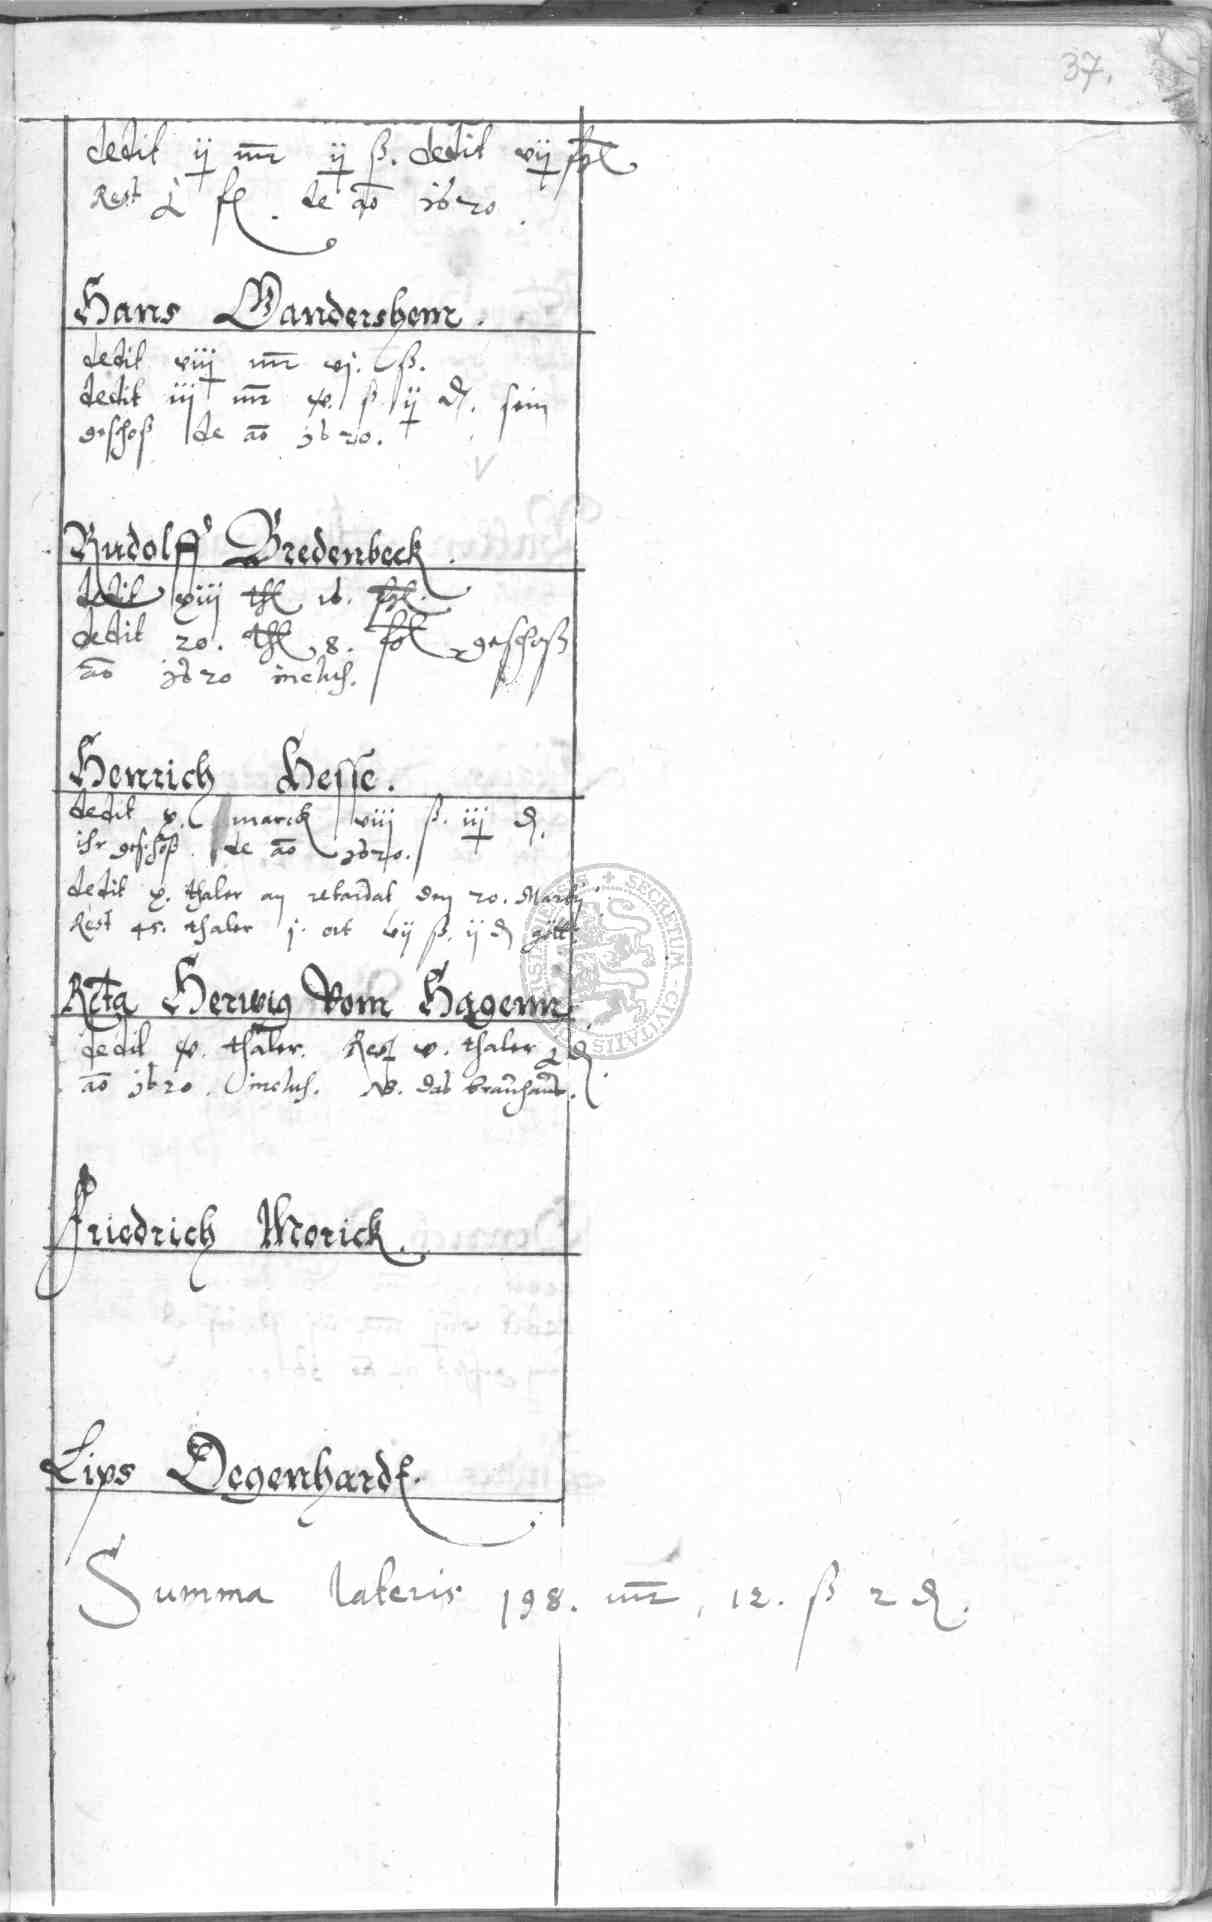 37.
dedit ij mr ij ß. dedit vij fgl
Rest fl. de ao 1620.
Hans Wandershem.
dedit viij mr vj. ß.
dedit iij mr x. ß ij d. sein
geschoß de ao 1620.
Rudolff Bredenbeck.
dedit xiij thl 16. fgl.
dedit 20. thl 8. fgl geschoß
ao 1620 inclus.
Henrich Hesse.
dedit x. marck viij ß. iij d.
ihr geschoß de ao 1620.
dedit x. thaler an retardat den 20. Martij
Rest 45. thaler j. ort vij ß. ij d gött.
Herwig Vom Hagenn
dedit x. thaler. Rest v. thaler d
ao 1620. inclus. NB. das brauhauß.
Friedrich Morick.
Lips Degenhardt.
Summa lateris 198. mr, 12. ß 2 d.
SECRETUM CIVITATIS